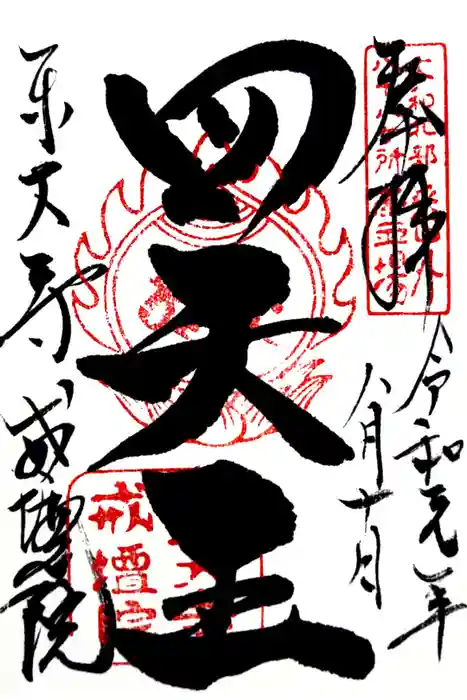 奉拝
令和元年
八月十日
四天王
東大寺 戒壇院
大和北部
戒壇院